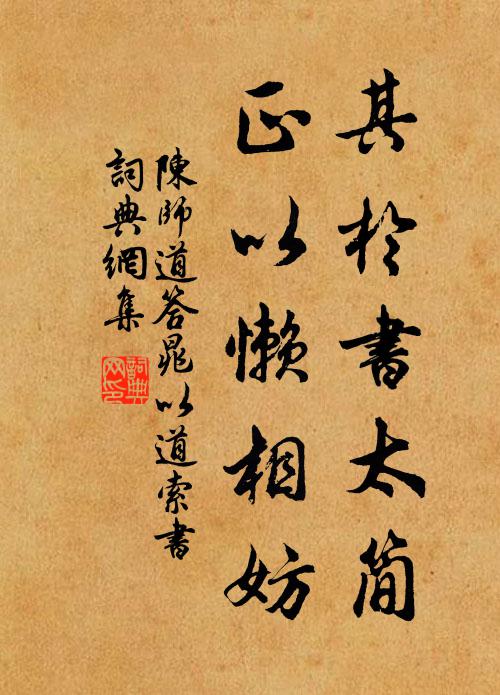 其於書太简
正以懒相妨
陳師道答晁以道索書
詞典網集
詞典
网印